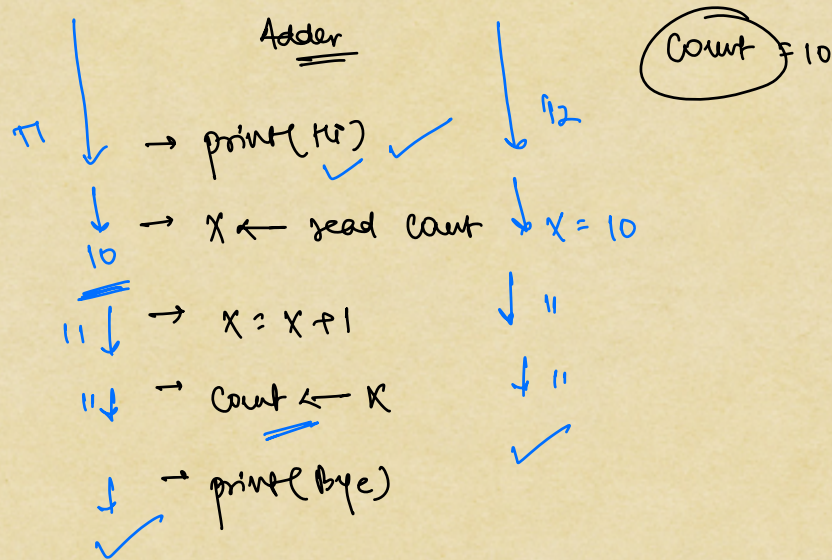 Adder
Count = 10
T1
T2
→ print(Hi)
→ X ← read count
X = 10
10
11
→ X = X + 1
11
11
→ Count ← X
11
→ print(Bye)